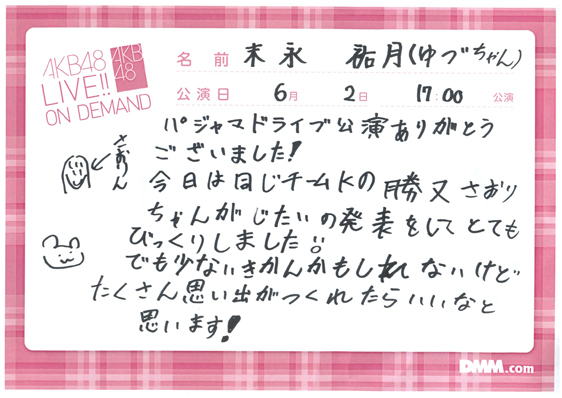 AKB48
LIVE!!
ON DEMAND
AKB
48
名前 末永 祐月(ゆづちゃん)
公演日 6月 2日 17:00 公演
パジャマドライブ公演ありがとう
ございました!
さおりん
今日は同じチームKの勝又さおり
ちゃんがじたいの発表をしてとても
びっくりしました
でも少ないきかんかもしれないけど
たくさん思い出がつくれたらいいなと
思います!
DMM.com